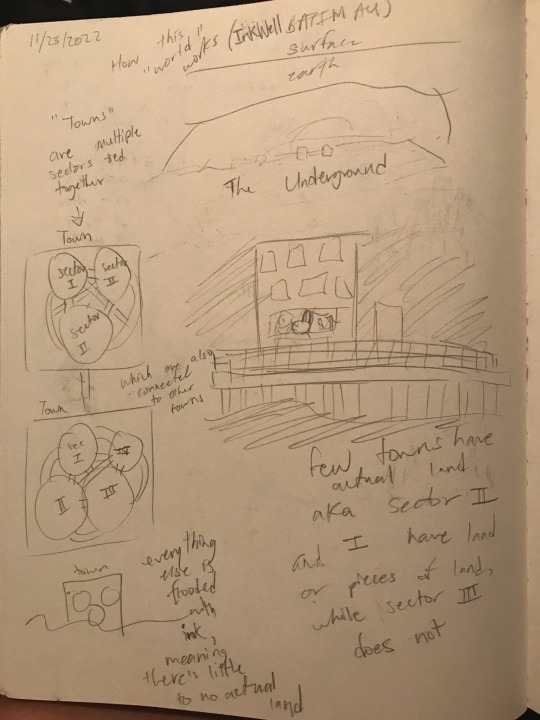 11/23/2022
How this "world" works (InkWell BATIM AU)
surface
earth
The Underground
"Towns"
are multiple
sectors tied
together
Town
sector
I
sector
III
sector
II
which are also
connected
to other
towns
Town
sec
I
IV
II
III
town
everything
else is
flooded
with
ink,
meaning
there's little
to no actual
land
few towns have
actual land
aka sector II
and I have land
or pieces of land,
while sector III
does not